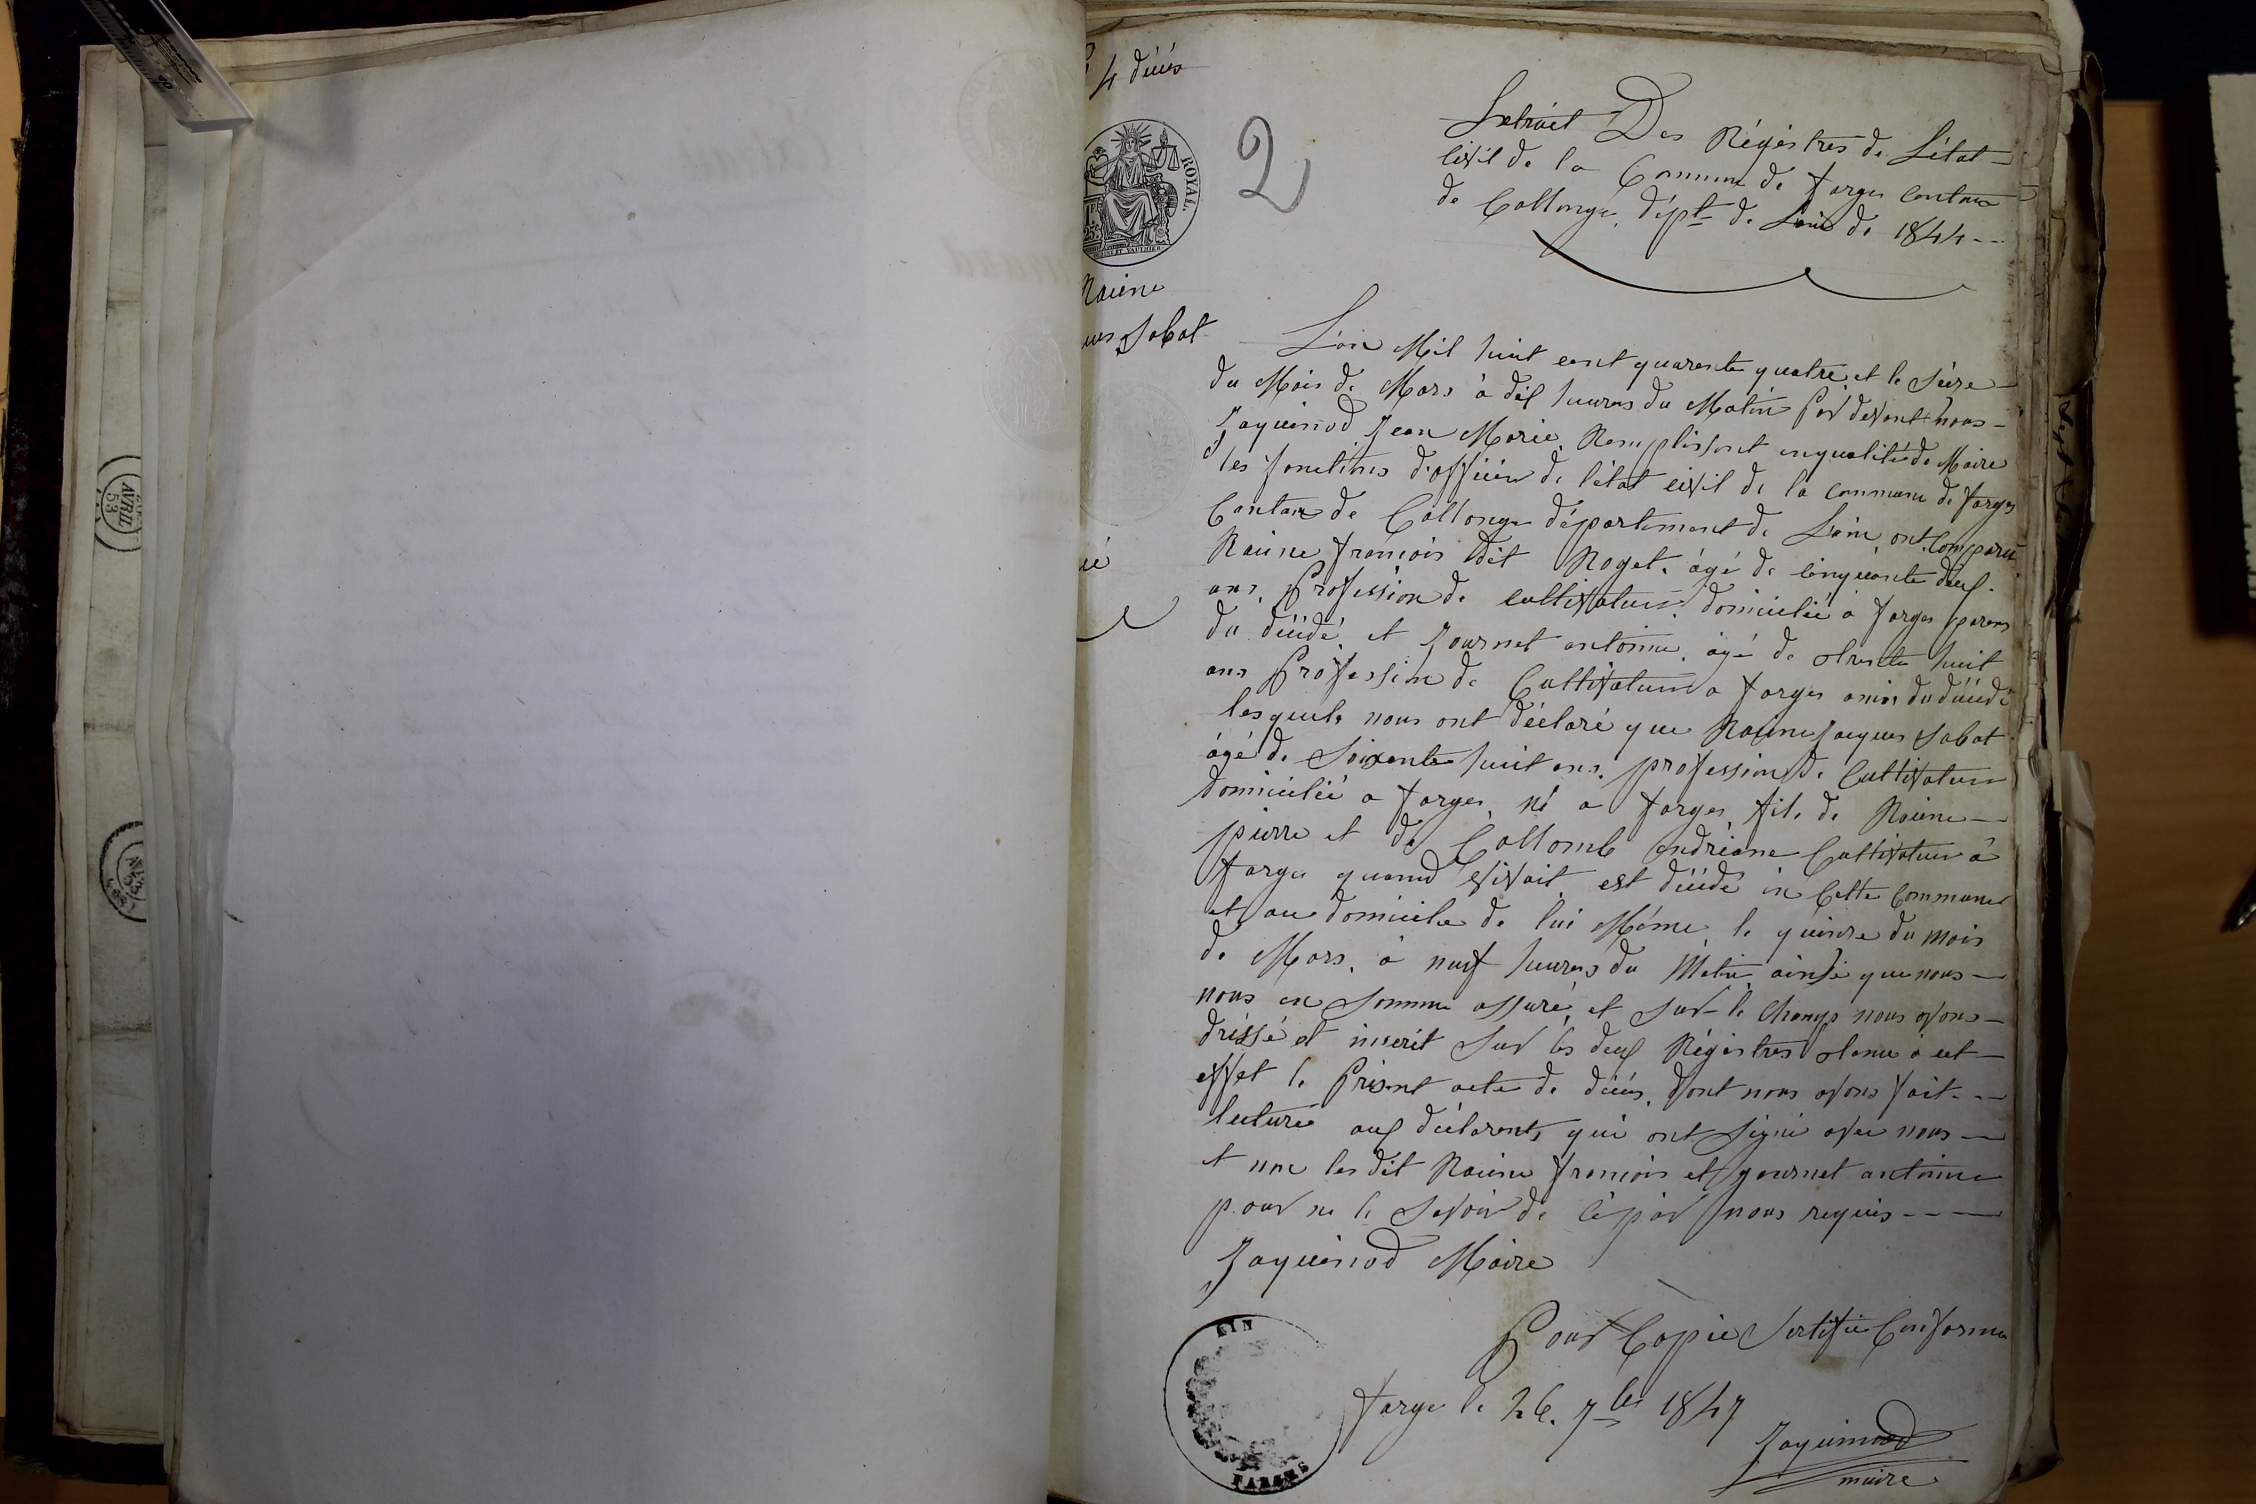 4 décès
2
ROYAL.
1F
25c
Extrait Des Régistres de L'état
Civil de la Commune de Farges Canton
de Collonge, dépt de L'ain de 1844
Raiene
ues Sabat
L'an Mil huit cent quarante quatre et le seize
du Mois de Mars à dix heures du Matin par devant nous
Jaquinod Jean Marie Remplissant en qualité de Maire
les fonctions d'officier de l'état civil de la commune de Farges
Canton de Collonge département de L'ain, ont comparu
Raiine François dit Roget, âgé de cinquante deux
ans, Profession de cultivateur domicilié à Farges parens
du décédé, et Journet antoine, âgé de trente huit
ans Profession de Cultivateur a Farges amis du décédé
lesquels nous ont déclaré que Raiine Jacques Sabat
âgé de Soixante huit ans, profession de Cultivateur
domicilié a Farges, né a Farges, fils de Raiine
pierre et de Collomb andréane Cultivateur à
Farges quand vivait, est décédé en Cette Commune
et au domicile de lui Même, le quinze du mois
de Mars, à neuf heures du Matin, ainsi que nous
nous en somme assuré, et sur le champs nous avons
dréssé et inscrit sur les deux Régistres tenu à cet
effet le Présent acte de décès, dont nous avons fait
lecture aux déclarents, qui ont signé avec nous
et non les dit Raiine François et journet antoine
pour ne le Savoir de ce par nous requis
Jaquinod Maire
AIN
FARGES
Pour Copie Sertifié Conforme
Farge le 26. 7bre 1847
Jaquinod
maire
AVRIL
53